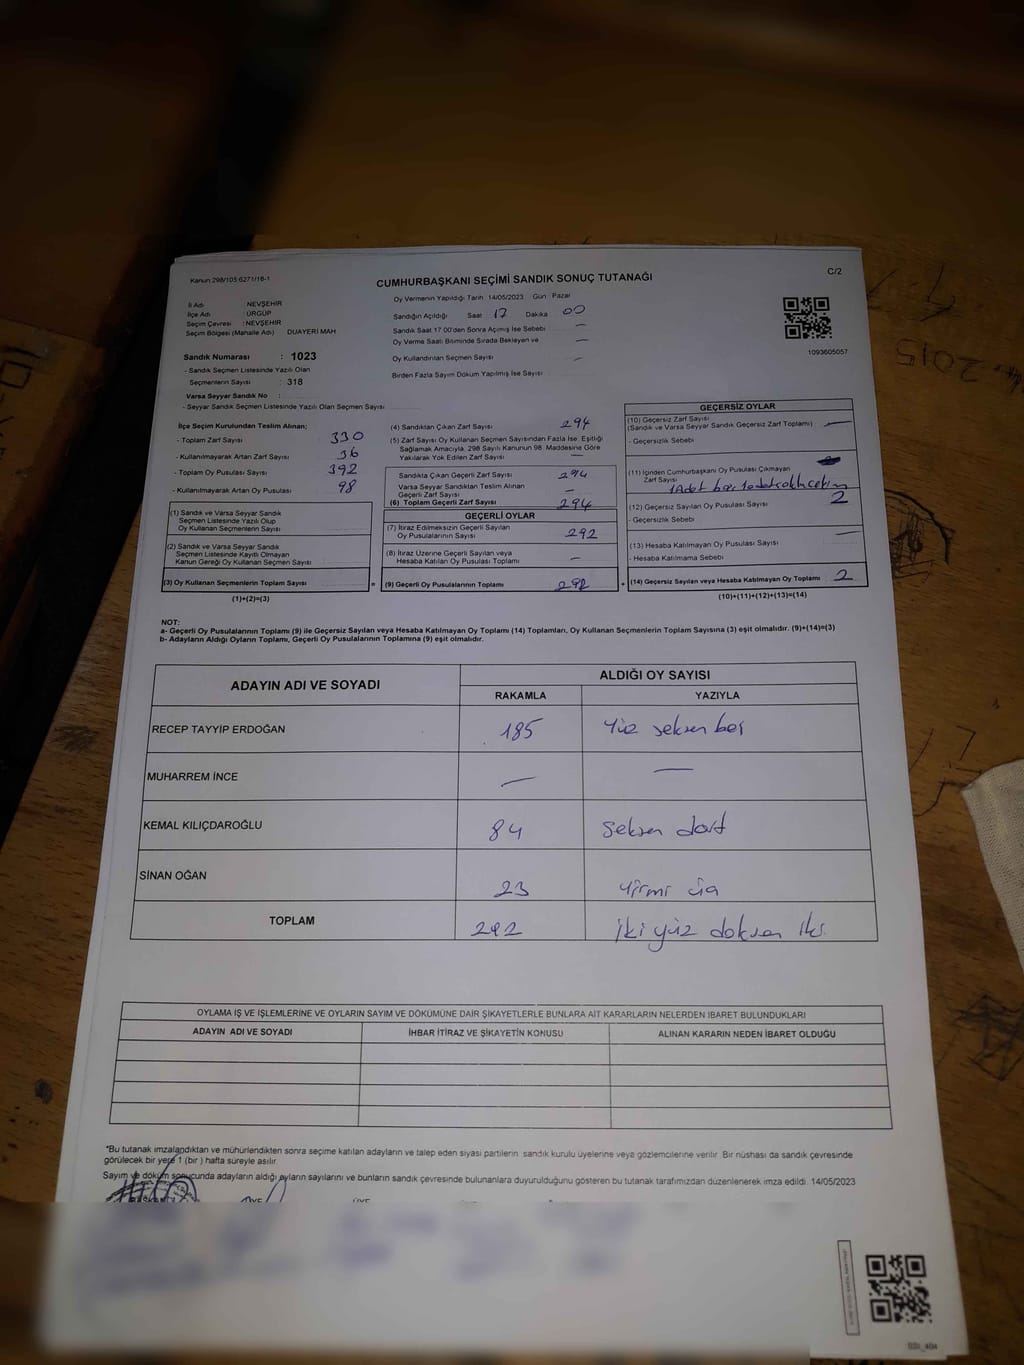 Kanun:298/105:6271/16-1
CUMHURBAŞKANI SEÇİMİ SANDIK SONUÇ TUTANAĞI
C/2
İl Adı : NEVŞEHİR
İlçe Adı : ÜRGÜP
Seçim Çevresi : NEVŞEHİR
Seçim Bölgesi (Mahalle Adı) DUAYERİ MAH
Sandık Numarası : 1023
- Sandık Seçmen Listesinde Yazılı Olan
Seçmenlerin Sayısı : 318
Varsa Seyyar Sandık No :
- Seyyar Sandık Seçmen Listesinde Yazılı Olan Seçmen Sayısı
Oy Vermenin Yapıldığı Tarih: 14/05/2023 Gün : Pazar
Sandığın Açıldığı Saat 17 Dakika 00
Sandık Saat 17:00'den Sonra Açılmış İse Sebebi —
Oy Verme Saati Bitiminde Sırada Bekleyen ve —
Oy Kullandırılan Seçmen Sayısı —
Birden Fazla Sayım Döküm Yapılmış İse Sayısı
1093605057
İlçe Seçim Kurulundan Teslim Alınan;
- Toplam Zarf Sayısı 330
- Kullanılmayarak Artan Zarf Sayısı 36
- Toplam Oy Pusulası Sayısı 392
- Kullanılmayarak Artan Oy Pusulası 98
(1) Sandık ve Varsa Seyyar Sandık
Seçmen Listesinde Yazılı Olup
Oy Kullanan Seçmenlerin Sayısı
(2) Sandık ve Varsa Seyyar Sandık
Seçmen Listesinde Kayıtlı Olmayan
Kanun Gereği Oy Kullanan Seçmen Sayısı
(3) Oy Kullanan Seçmenlerin Toplam Sayısı =
(1)+(2)=(3)
(4) Sandıktan Çıkan Zarf Sayısı 294
(5) Zarf Sayısı Oy Kullanan Seçmen Sayısından Fazla İse, Eşitliği
Sağlamak Amacıyla, 298 Sayılı Kanunun 98. Maddesine Göre
Yakılarak Yok Edilen Zarf Sayısı —
Sandıkta Çıkan Geçerli Zarf Sayısı 294
Varsa Seyyar Sandıktan Teslim Alınan
Geçerli Zarf Sayısı —
(6) Toplam Geçerli Zarf Sayısı 294
GEÇERLİ OYLAR
(7) İtiraz Edilmeksizin Geçerli Sayılan
Oy Pusulalarının Sayısı 292
(8) İtiraz Üzerine Geçerli Sayılan veya
Hesaba Katılan Oy Pusulası Toplamı —
(9) Geçerli Oy Pusulalarının Toplamı 292 +
GEÇERSİZ OYLAR
(10) Geçersiz Zarf Sayısı
(Sandık ve Varsa Seyyar Sandık Geçersiz Zarf Toplamı) —
- Geçersizlik Sebebi
(11) İçinden Cumhurbaşkanı Oy Pusulası Çıkmayan
Zarf Sayısı
(12) Geçersiz Sayılan Oy Pusulası Sayısı 2
- Geçersizlik Sebebi
(13) Hesaba Katılmayan Oy Pusulası Sayısı —
- Hesaba Katılmama Sebebi
(14) Geçersiz Sayılan veya Hesaba Katılmayan Oy Toplamı 2
(10)+(11)+(12)+(13)=(14)
NOT:
a- Geçerli Oy Pusulalarının Toplamı (9) ile Geçersiz Sayılan veya Hesaba Katılmayan Oy Toplamı (14) Toplamları, Oy Kullanan Seçmenlerin Toplam Sayısına (3) eşit olmalıdır. (9)+(14)=(3)
b- Adayların Aldığı Oyların Toplamı, Geçerli Oy Pusulalarının Toplamına (9) eşit olmalıdır.
ADAYIN ADI VE SOYADI
ALDIĞI OY SAYISI
RAKAMLA YAZIYLA
RECEP TAYYİP ERDOĞAN 185 Yüz seksen beş
MUHARREM İNCE — —
KEMAL KILIÇDAROĞLU 84 seksen dört
SİNAN OĞAN 23 yirmi üç
TOPLAM 292 iki yüz doksan iki
OYLAMA İŞ VE İŞLEMLERİNE VE OYLARIN SAYIM VE DÖKÜMÜNE DAİR ŞİKAYETLERLE BUNLARA AİT KARARLARIN NELERDEN İBARET BULUNDUKLARI
ADAYIN ADI VE SOYADI İHBAR İTİRAZ VE ŞİKAYETİN KONUSU ALINAN KARARIN NEDEN İBARET OLDUĞU
*Bu tutanak imzalandıktan ve mühürlendikten sonra seçime katılan adayların ve talep eden siyasi partilerin sandık kurulu üyelerine veya gözlemcilerine verilir. Bir nüshası da sandık çevresinde
görülecek bir yere 1 (bir ) hafta süreyle asılır.
Sayım ve döküm sonucunda adayların aldığı oyların sayılarını ve bunların sandık çevresinde bulunanlara duyurulduğunu gösteren bu tutanak tarafımızdan düzenlenerek imza edildi. 14/05/2023
2015